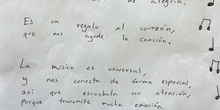 de alegría.
Es un regalo al corazón,
que nos ayuda la canción.
La música es universal,
y nos conecta de forma especial,
así que escuchala con atención,
porque transmite mucha emoción.